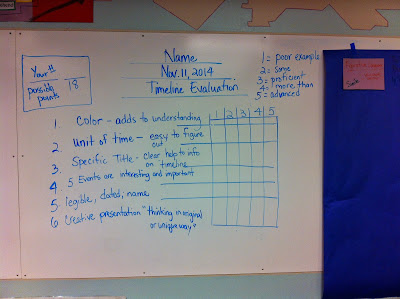 Name
Nov. 11, 2014
Timeline Evaluation
Your #
possible points 18
1 = poor example
2 = some
3 = proficient
4 = more than
5 = advanced
1 2 3 4 5
1. Color - adds to understanding
2. Unit of time - easy to figure out
3. Specific Title - clear help to info on timeline
4. 5 Events are interesting and important
5. legible, dates, name
6 Creative presentation "thinking in original or unique way"